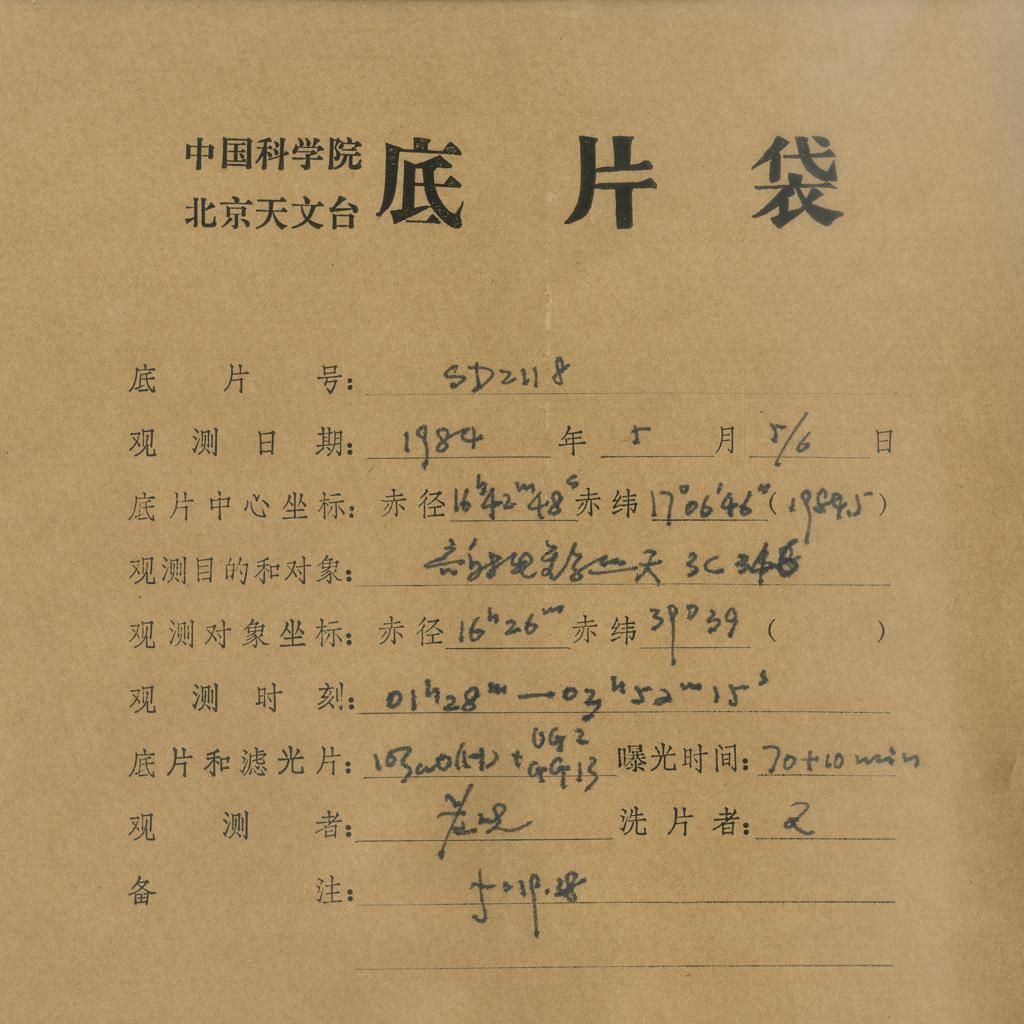 中国科学院
北京天文台 底片袋
底片号： SD2118
观测日期： 1984 年 5 月 5/6 日
底片中心坐标： 赤径 16h42m48s 赤纬 17°06'46" (1984.5)
观测目的和对象： 天 3C 345
观测对象坐标： 赤径 16h26m 赤纬 39°39 ( )
观测时刻： 01h28m — 03h52m15s
底片和滤光片： 103aO(H) + UG2 GG13 曝光时间： 70+10min
观测者： 洗片者：
备注：